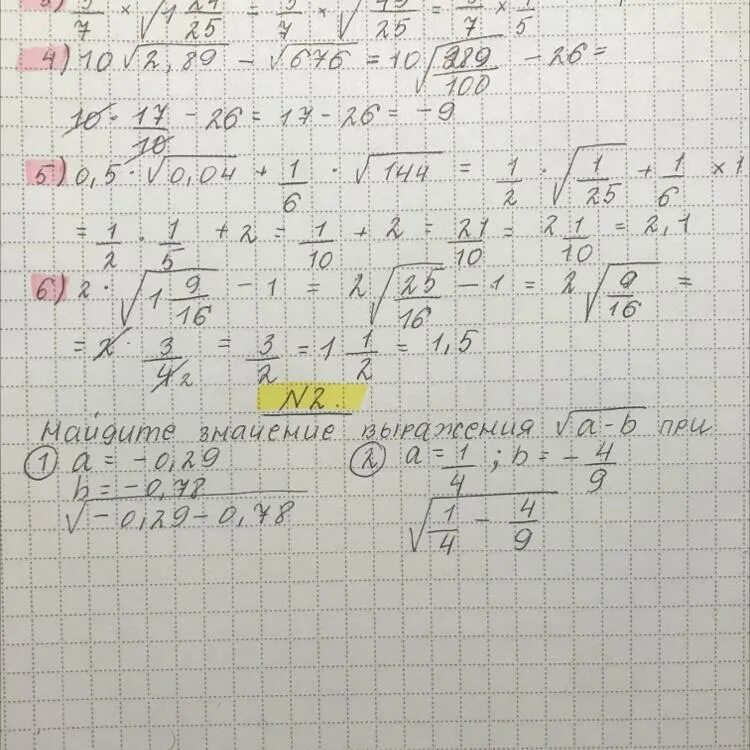 3) 3/7 × √(1 24/25) = 3/7 × √(49/25) = 3/7 × 7/5
4) 10√2,89 − √676 = 10√(289/100) − 26 =
10 · 17/10 − 26 = 17 − 26 = −9
5) 0,5 · √0,04 + 1/6 · √144 = 1/2 · √(1/25) + 1/6 × 1
= 1/2 · 1/5 + 2 = 1/10 + 2 = 21/10 = 2 1/10 = 2,1
6) 2 · √(1 9/16) − 1 = 2√(25/16) − 1 = 2√(9/16) =
= 2 · 3/4 2 = 3/2 = 1 1/2 = 1,5
N2.
Найдите значение выражения √(a-b) при
① a = −0,29 ② a = 1/4 ; b = − 4/9
b = −0,78
√(−0,29 − 0,78) √(1/4 − 4/9)